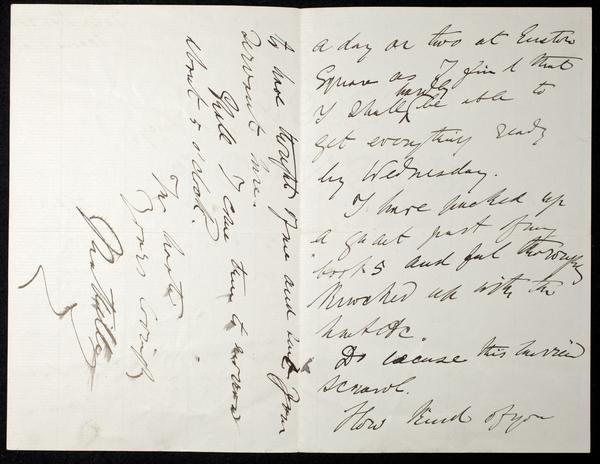 a day or two at Euston
Square as I find that
I shall hardly be able to
get everything ready
by Wednesday.
I have packed up
a great part of my
books and feel thoroughly
knocked up with the
Do excuse this hurried
scrawl.
How kind of you
to have thought of me and sent your
servant here.
Shall I come there tomorrow
about 5 o'clock.
In haste
Yours lovingly